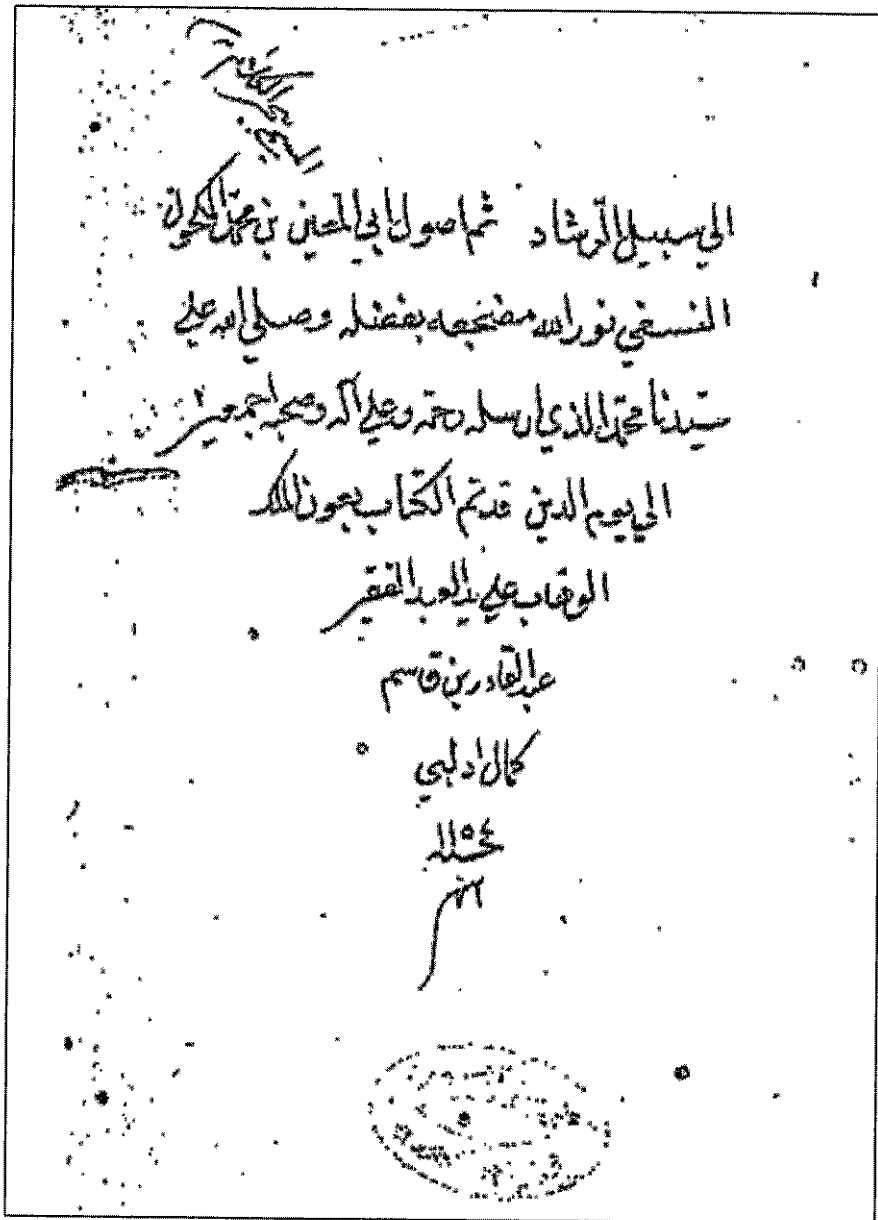 الي سبيل الرشاد ثم اصول ابي المعين بن محمد المكحول
النسفي نور الله مضجعه بفضله وصلي الله علي
سيدنا محمد الذي ارسله رحمة وعلي آله وصحبه اجمعين
الي يوم الدين قد تم الكتاب بعون الملك
الوهاب علي يد العبد الفقير
عبد القادر بن قاسم
كمال ادلبي
سنة ١١٥٤